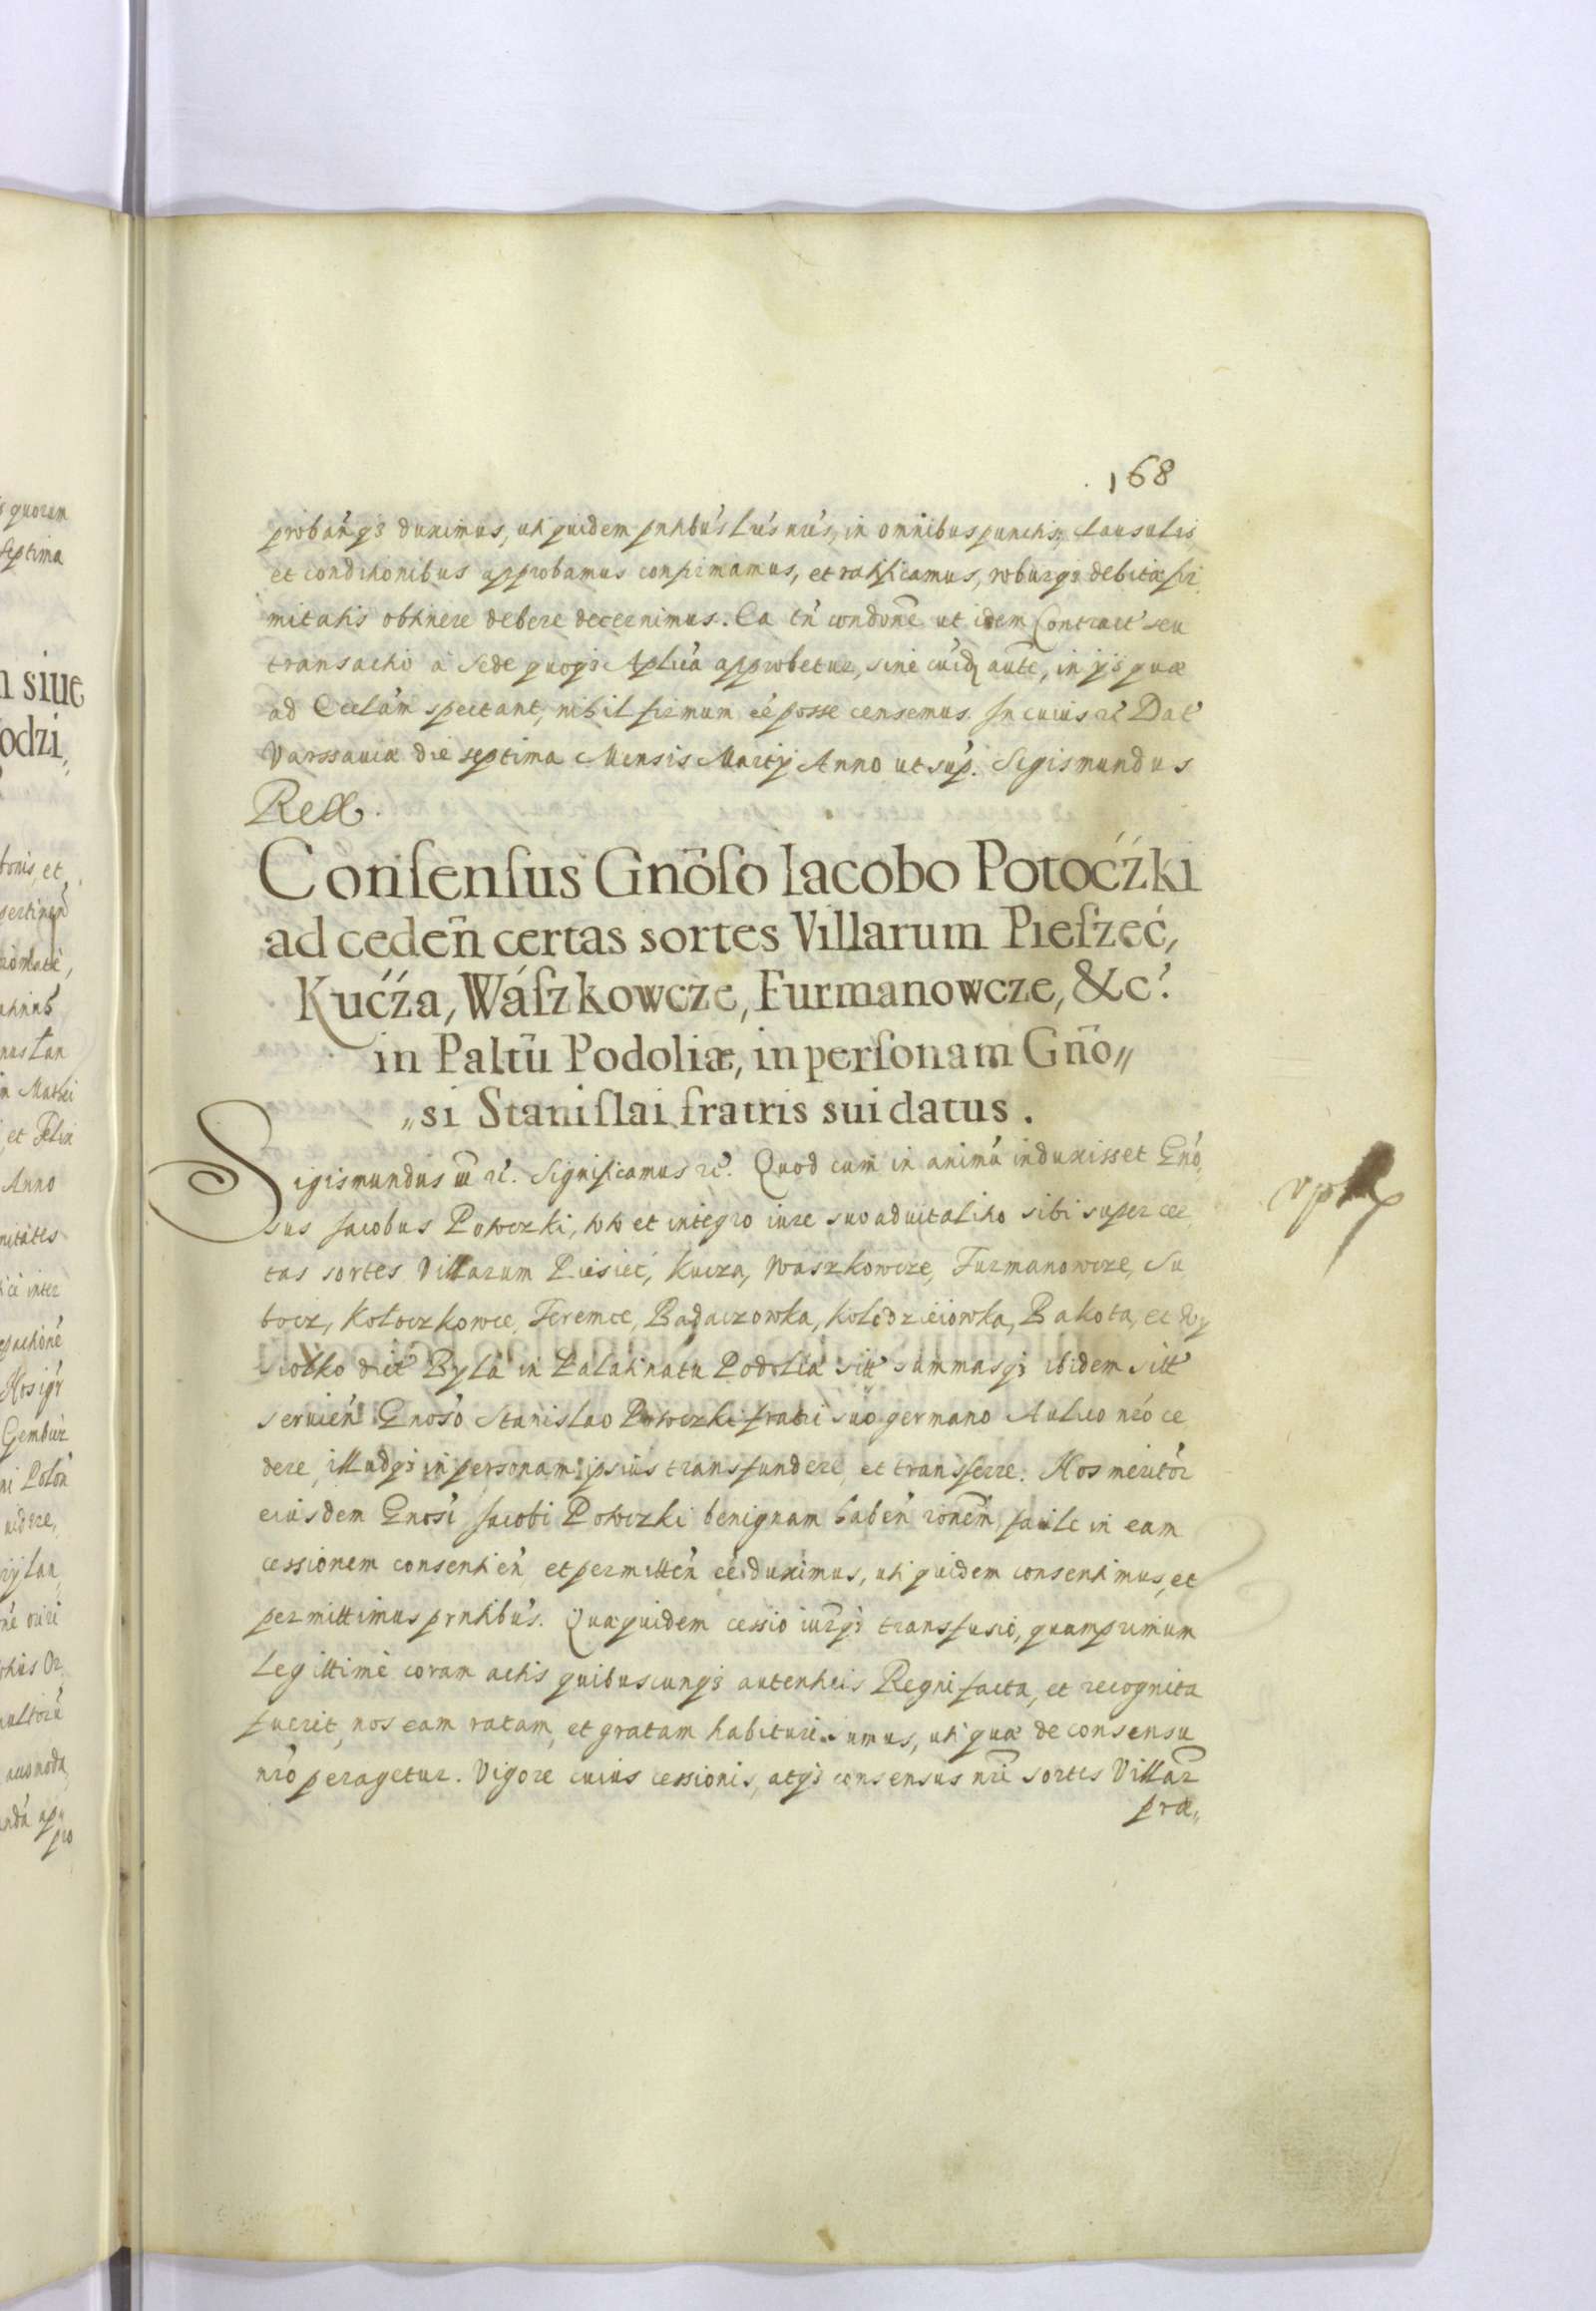 168
probanq3 duximus, uti quidem pntibus Lris nris, in omnibus punctis, clausulis,
et conditionibus approbamus confirmamus, et ratificamus, roburq3 debitæ fir
mitatis obtinere debere decernimus. Ea tn condone ut idem Contract' seu
transactio à Sede quoq3 Aplica approbetur, sine cuiq aute, in ijs quæ
ad Eccl'am spectant, nihil firmum eé posse censemus. In cuius rẻ Dat'
Varssauiæ die septima Mensis Martij Anno ut sup. Sigismundus
Rex.
Consensus Gnõso Iacobo Potoćźki
ad cedeñ certas sortes Villarum Pieszeć,
Kućźa, Wászkowcze, Furmanowcze, &c?
in Paltũ Podoliæ, in personam Gño〃
〃si Stanislai fratris sui datus.
Sigismundus iii rẻ. Significamus rẻ. Quod cum in animũ induxisset Gnó,
sus Jacobus Potoczki, toto et integro iure suo aduitalitio sibi super cer
tas sortes Villarum Piesieć, Kucza, Waszkowcze, Furmanowcze, Su
bocz, Kotoczkowce, Teremce, Badaczowka, Kolodzieiowka, Bakota, et Wy
siolko dict' Byla in Palatinatu Podoliæ sitt' summasq3 ibidem sitt'
seruien' Gnoso Stanislao Potoczki fratri suo germano Aulico nró ce
dere, illudq3 in personam ipsius transfundere, et transferre. Nos meritor
eiusdem Gnosi Jacobi Potoczki benignam haben' ronem, facile in eam
cessionem consentien', et permitten' eé duximus, uti quidem consentimus, et
permittimus prntibus. Quæ quidem cessio iurq3 transfusio, quamprimum
Legittimè coram actis quibuscunq3 autenticis Regni facta, et recognita
fuerit, nos eam ratam, et gratam habituri sumus, uti quæ de consensu
nrò peragetur. Vigore cuius cessionis, atq3 consensus nri sortes Villar
præ〃